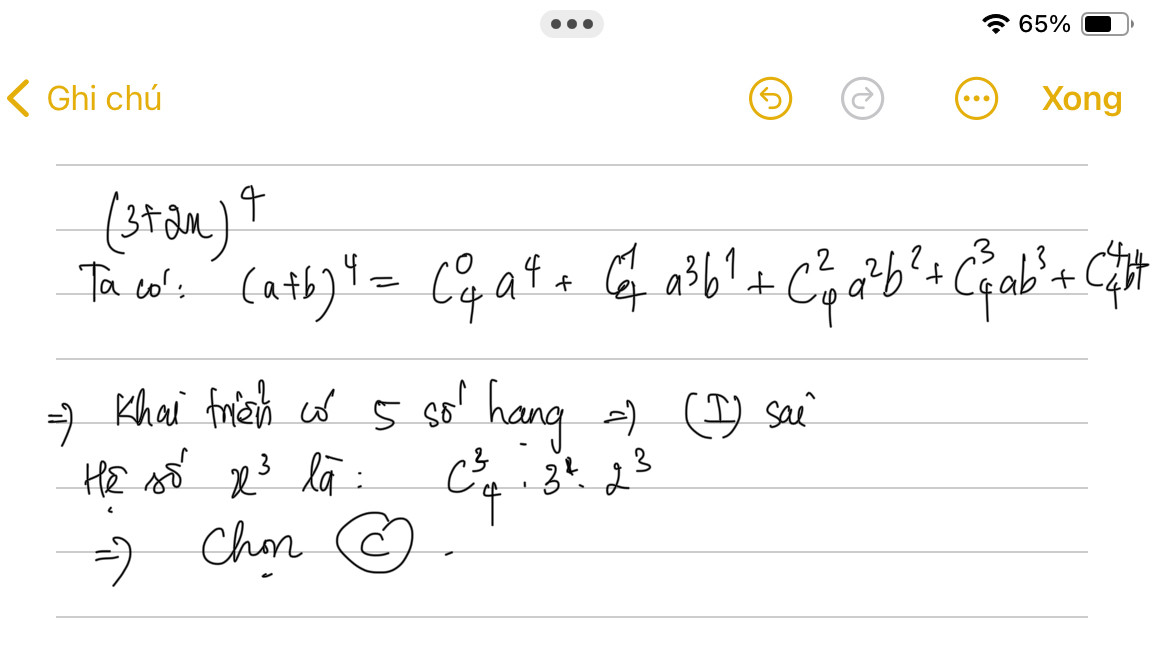 65%
Ghi chú Xong
(3+2x)⁴
Ta có: (a+b)⁴ = C₄⁰ a⁴ + C₄¹ a³b¹ + C₄² a²b² + C₄³ ab³ + C₄⁴ b⁴
=) Khai triển có 5 số hạng =) (I) sai
Hệ số x³ là: C₄³ . 3¹. 2³
=) Chọn C .